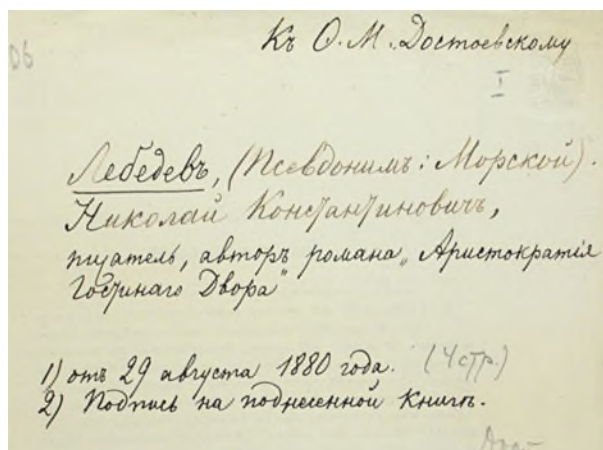 Къ Ѳ. М. Достоевскому
I
Лебедевъ, (Псевдонимъ: Морской).
Николай Константиновичъ,
писатель, авторъ романа „Аристократія
Гостинаго Двора"
1) отъ 29 августа 1880 года. (4 стр.)
2) Подпись на поднесенной книгѣ.